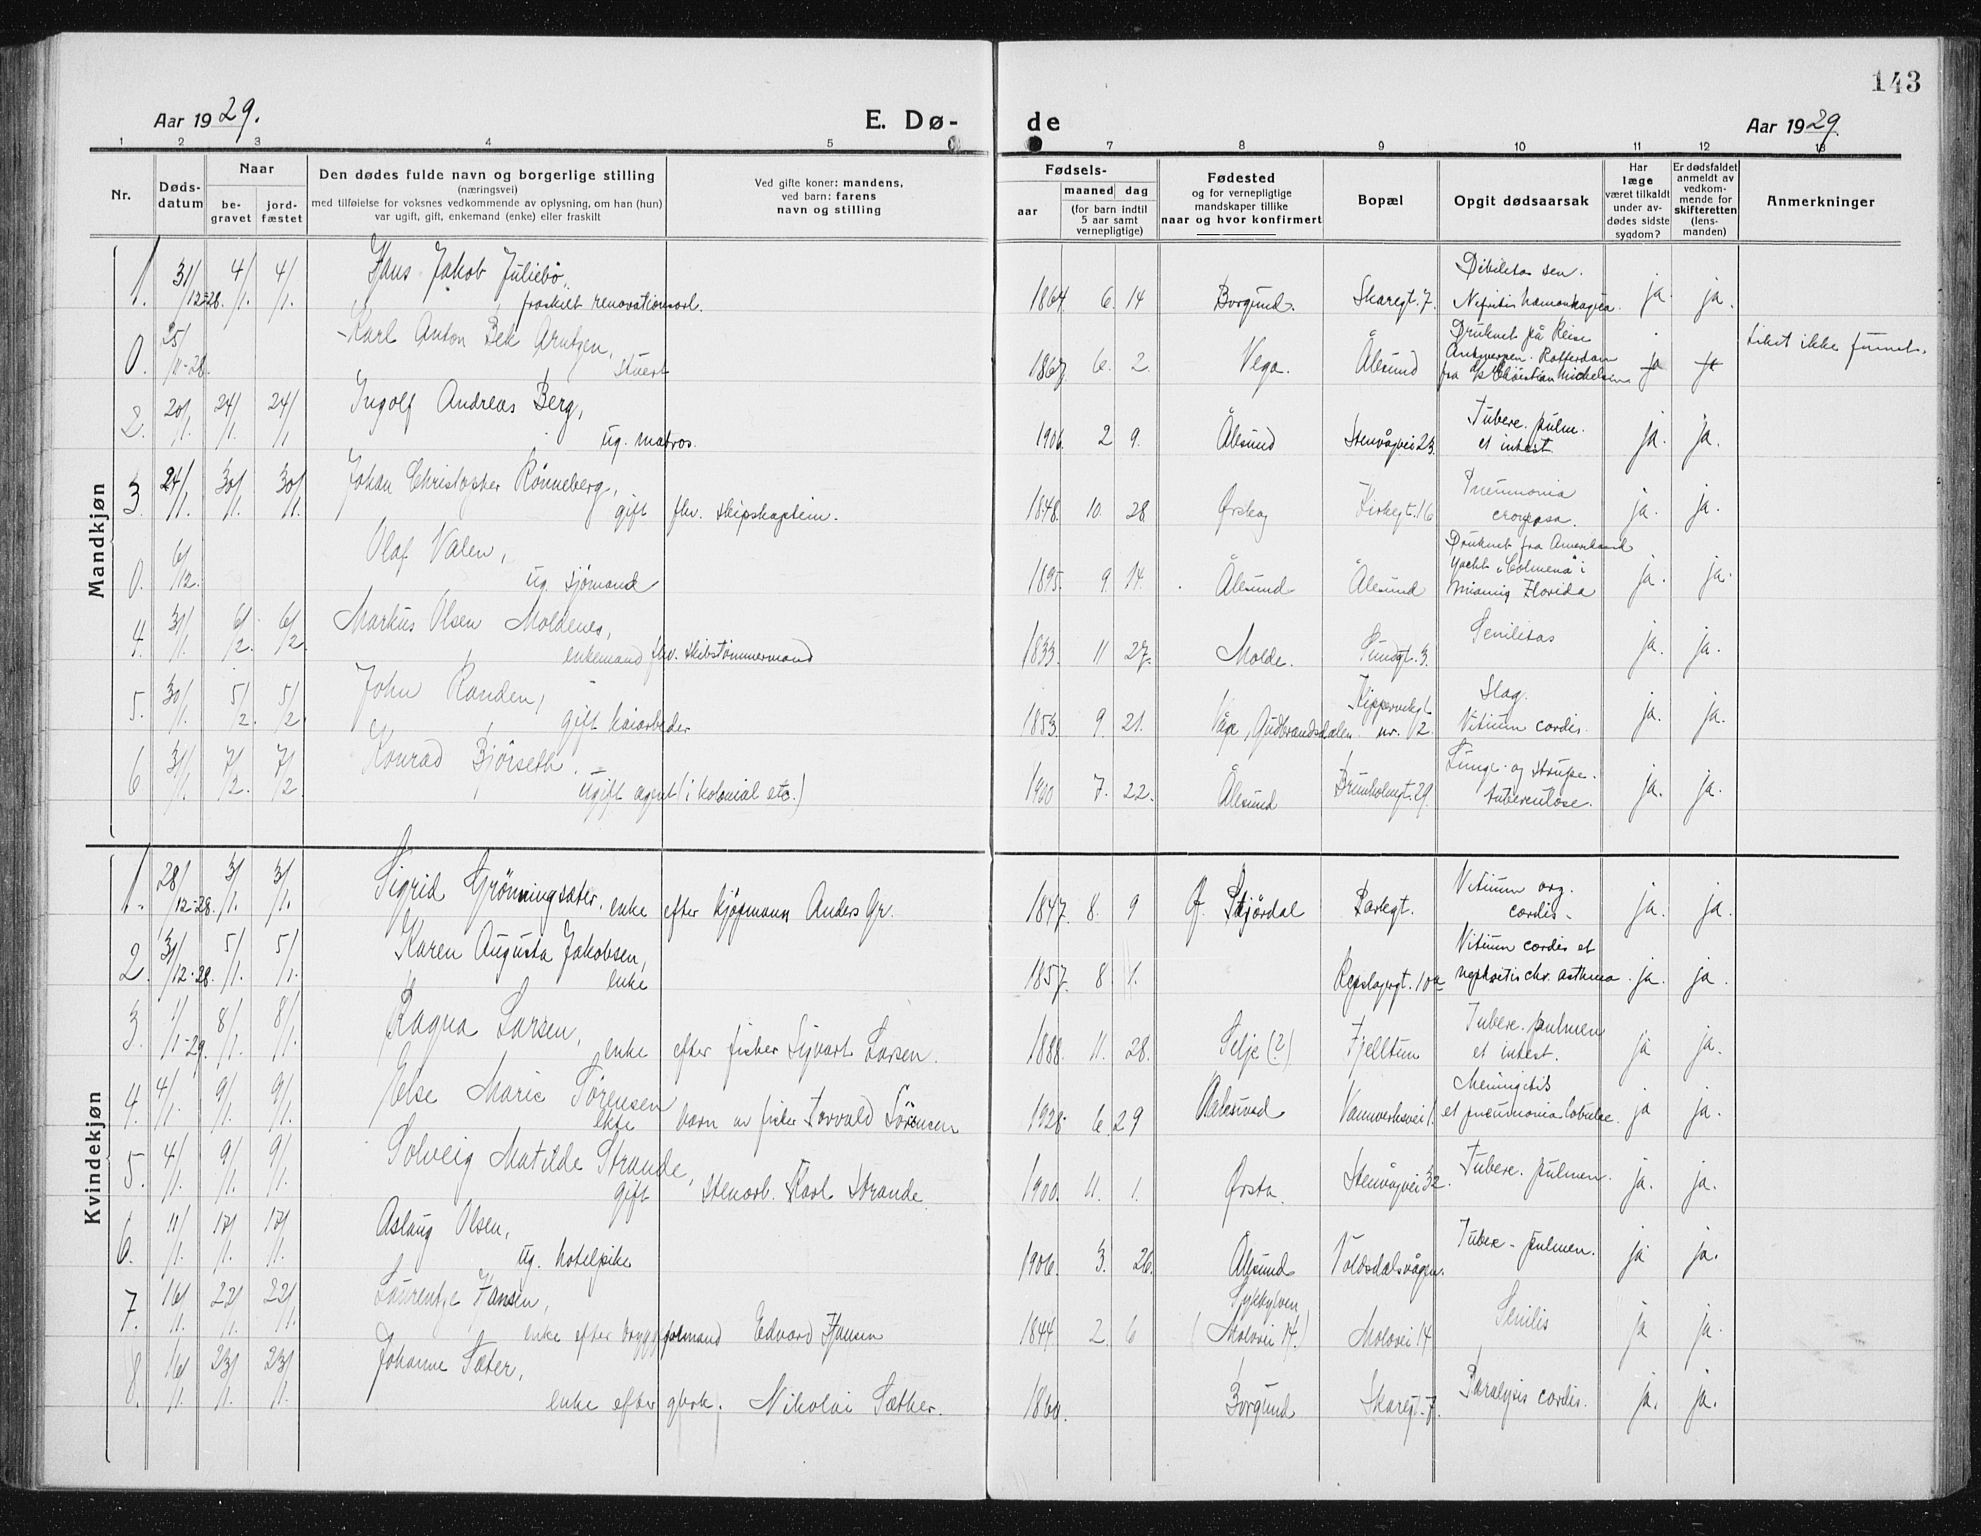 143
Aar 1929.
E. Dø-
de
Aar 1929.
1 2 3 4 5 7 8 9 10 11 12 13
Nr.
Døds-
datum
Naar
be-
gravet
jord-
fæstet
Den dødes fulde navn og borgerlige stilling
(næringsvei)
med tilføielse for voksnes vedkommende av oplysning, om han (hun)
var ugift, gift, enkemand (enke) eller fraskilt
Ved gifte koner: mandens,
ved barn: farens
navn og stilling
Fødsels-
aar
maaned dag
(for barn indtil
5 aar samt
vernepligtige)
Fødested
og for vernepligtige
mandskaper tillike
naar og hvor konfirmert
Bopæl
Opgit dødsaarsak
Har
læge
været tilkaldt
under av-
dødes sidste
sygdom?
Er dødsfaldet
anmeldt av
vedkom-
mende for
skifteretten
(lens-
manden)
Anmerkninger
Mandkjøn
1. 31/12-28. 4/1. 4/1. Hans Jakob Juliebø,
fraskilt renovationsarb.
1864 6. 14 Borgund. Skaregt. 7 Dibilitas sen.
ja. ja.
0. 25/11-28. Karl Anton Bek Arntzen,
Stuert
1867. 6. 2. Vega. Ålesund Druknet på Reise
Antwerpen. Rotterdam
fra d/s Christian Michelsen ja ja
Liket ikke funnet.
2. 20/1. 24/1. 24/1 Ingolf Andreas Berg,
ug. matros.
1906. 2 9. Ålesund Stenvågvei 23. Tuberc. pulm.
et intest. ja. ja.
3. 24/1. 30/1. 30/1. Johan Christopher Rönneberg,
gift fhv. skipskaptein.
1848. 10. 28. Ørskog Kirkegt. 16 Pneumonia
crouposa. ja. ja.
0. 6/12. Olaf Valen,
ug. sjömand
1895. 9. 14. Ålesund Ålesund Druknet fra Amerikansk
Yacht "Colmena" i
Miami Florida ja. ja.
4. 31/1. 6/2. 6/2. Markus Olsen Moldenes,
enkemand fhv. skibstömmermand
1833. 11 27. Molde. Sundgt. 3. Senilitas ja. ja.
5. 30/1. 5/2. 5/2. John Randen,
gift kaiarbeider
1853. 9. 21. Vågå, Gudbrandsdalen. Kippervikgt
nr. 12. Slag.
Vitium cordis. ja. ja.
6 31/1. 7/2. 7/2. Konrad Bjørseth.
ugift agent (i kolonial etc.)
1900 7. 22. Ålesund Brunholmgt. 29. Lunge- og strupe-
tuberculose. ja. ja.
Kvindekjøn
1. 28/12-28. 3/1. 3/1. Sigrid Grönningsæter, enke efter kjøpmann Anders Gr.
1847. 8. 9 Stjördal Parkgt. Vitium org.
cordis. ja. ja.
2. 31/12-28. 5/1. 5/1. Karen Augusta Jakobsen,
enke
1857. 8. 1. Repslagergt. 10a Vitium cordis et
nephritis chr. asthma ja. ja.
3. 1/1-29. 8/1. 8/1. Ragna Larsen,
enke efter fisker Sigvart Larsen.
1888. 11. 28. Selje (?) Fjelltun Tuberc. pulmen
et intest. ja ja.
4. 4/1. 9/1. 9/1. Else Marie Sørensen
ekte barn av fisker Torvald Sörensen
1928. 6. 29 Aalesund Vannverksvei 1. Meningitis
et pneumonia lobular. ja ja.
5. 4/1. 9/1. 9/1. Solveig Matilde Strande,
gift stenarb. Karl Strande.
1900. 11. 1. Ørsta. Stenvågvei 32. Tuberc. pulmen. ja. ja.
6. 11/1. 17/1. 17/1. Aslaug Olsen,
ug. hotelpike
1906. 3. 26. Ålesund Voldsdalsvågen. Tuberc. pulmen. ja ja.
7. 16/1. 22/1. 22/1. Laurentze Hansen,
enke efter bryggeformand Edvard Hansen
1844. 2. 6 Sykkylven
(Molovei 14.) Molovei 14 Senilis ja ja.
8. 16/1. 23/1. 23/1. Johanne Sæter,
enke efter gbrk. Nikolai Sæther.
1860. Borgund Skaregt. 7. Paralysis cordis. ja. ja.